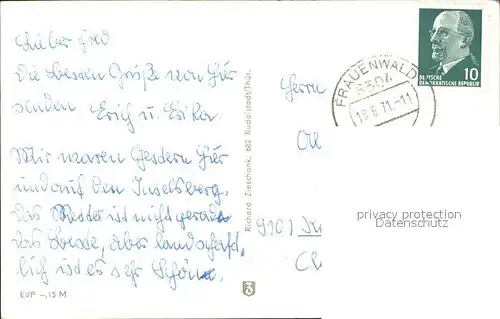 Lieber Fred
Die besten Grüße von hier
senden Erich u. Erika.
Wir waren Gestern hier
und auf den Inselsberg.
das Wetter ist nicht gerade
das beste, aber landschaft-
lich ist es sehr schön.
EVP -,15 M
Richard Zieschank, 682 Rudolstadt/Thür.
FRAUENWALD
6304
18.6.71.-11
DEUTSCHE
DEMOKRATISCHE REPUBLIK
10
Herrn
9101
privacy protection
Datenschutz